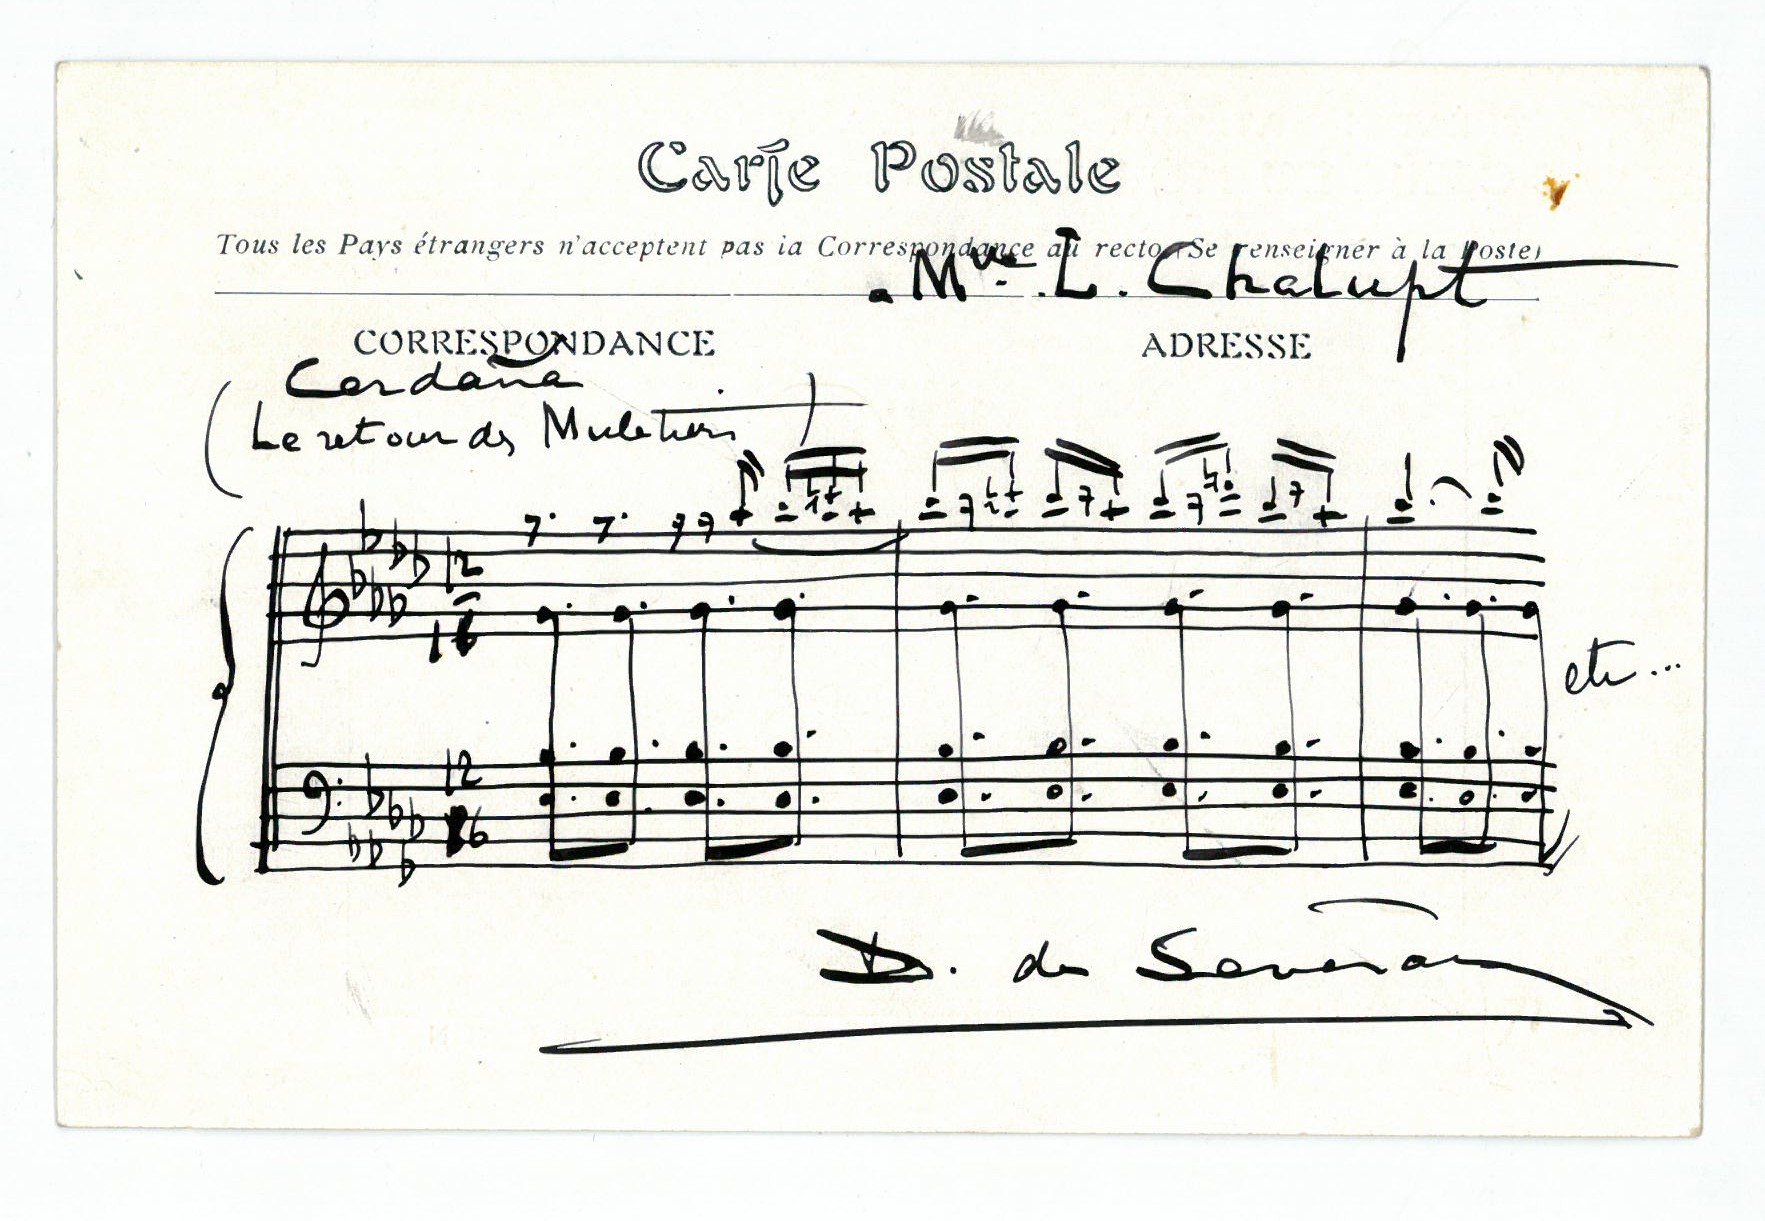 Carte Postale
Tous les Pays étrangers n'acceptent pas la Correspondance au recto (Se renseigner à la Poste)
Mme. L. Chalupt
CORRESPONDANCE
ADRESSE
Cerdaña
(Le retour des Muletiers)
12
16
etc...
12
16
D. de Séverac